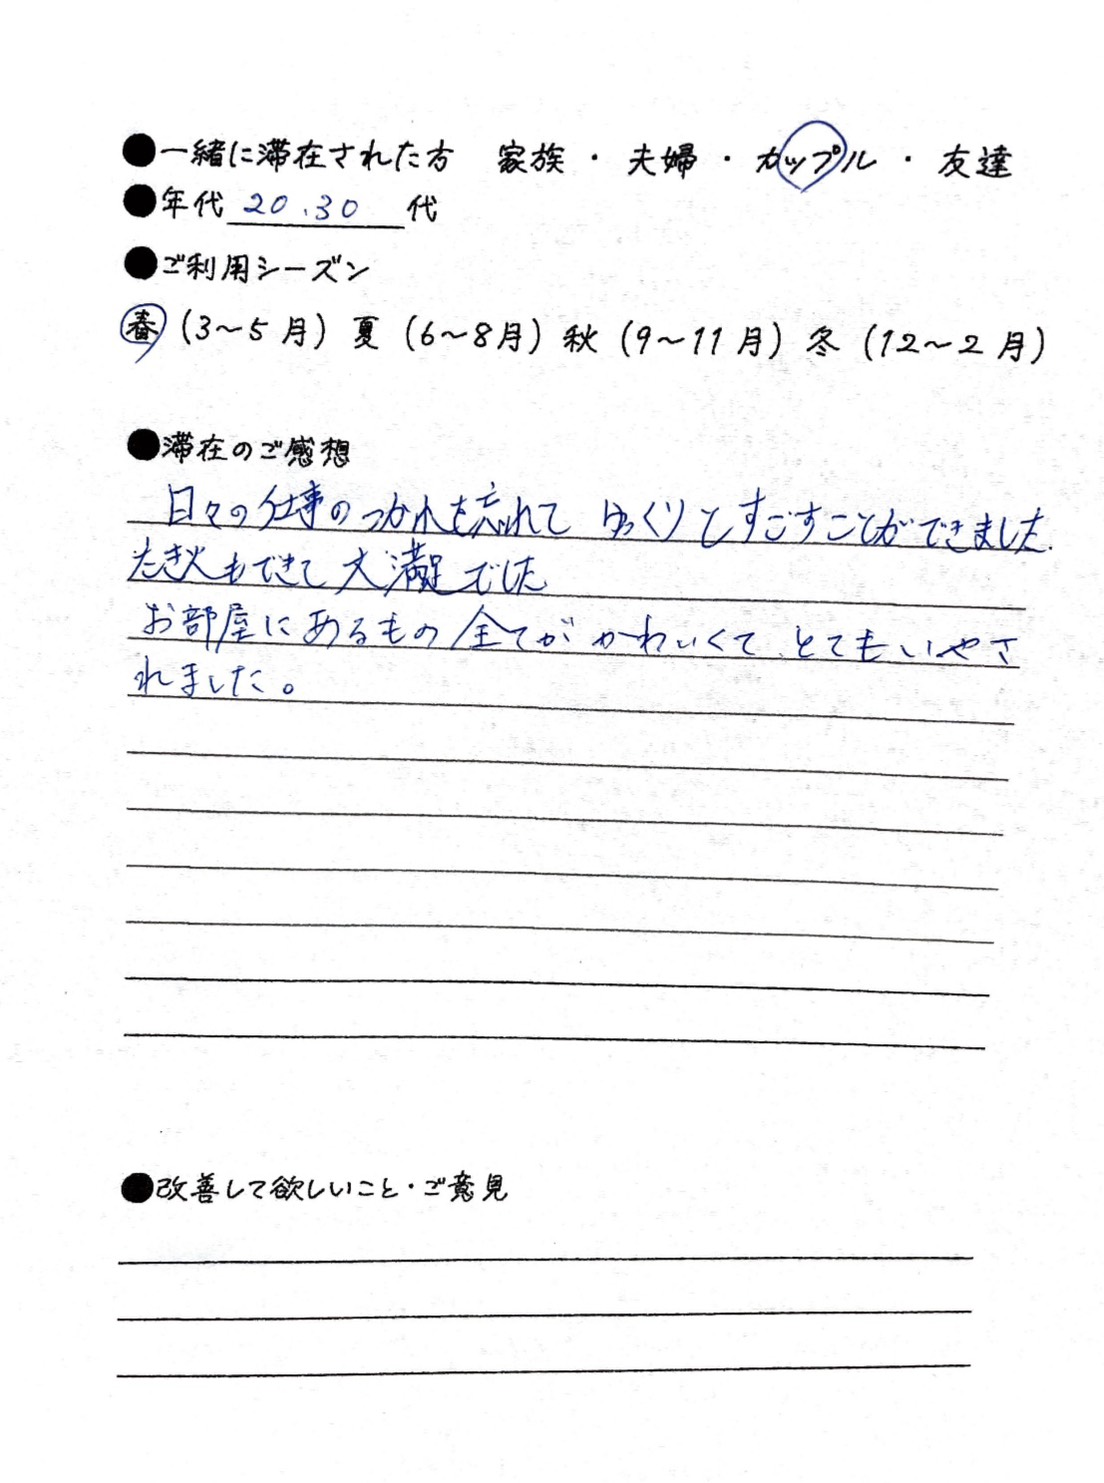 ●一緒に滞在された方 家族・夫婦・カップル・友達
●年代 20.30 代
●ご利用シーズン
春(3～5月)夏(6～8月)秋(9～11月)冬(12～2月)
●滞在のご感想
日々の仕事のつかれを忘れて ゆっくりとすごすことができました.
たき火もできて大満足でした
お部屋にあるもの全てがかわいくて、とてもいやさ
れました。
●改善して欲しいこと・ご意見